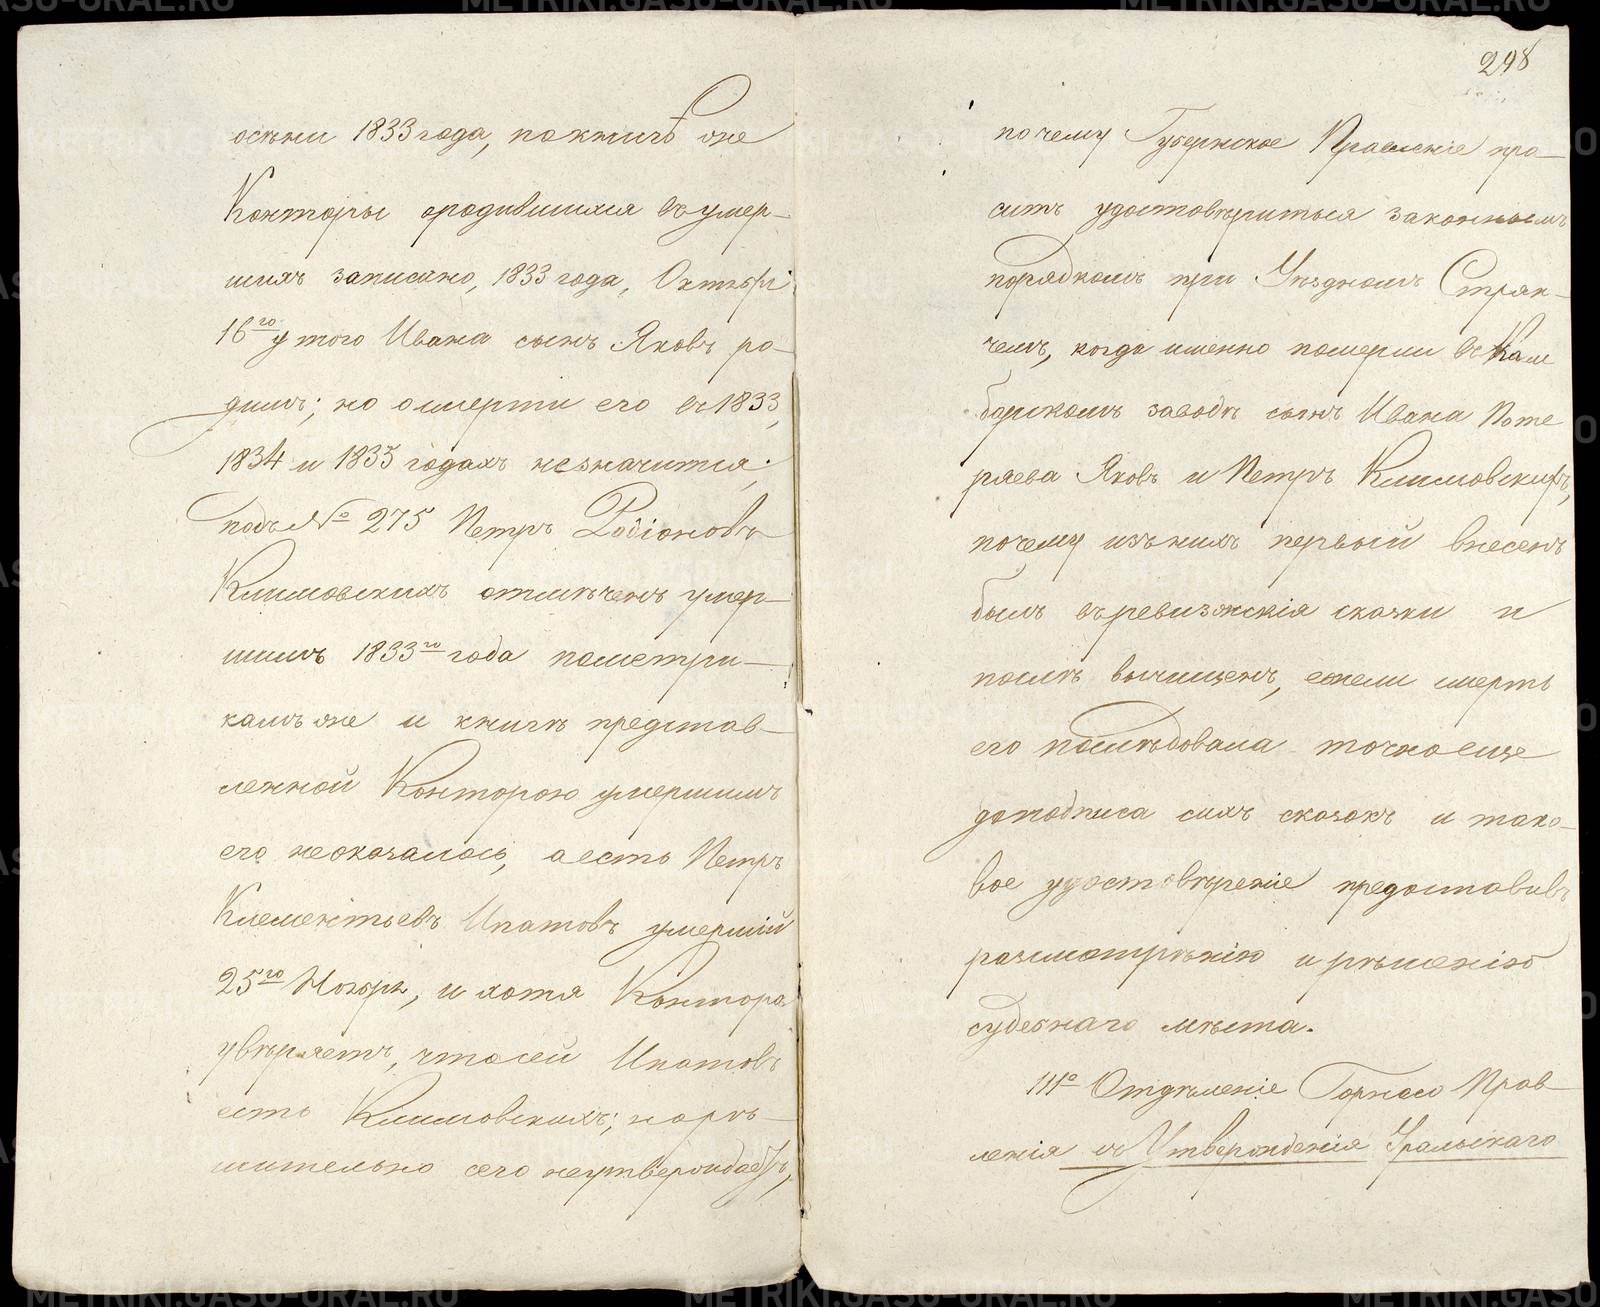 осѣни 1833 года, по книгѣ же
Конторы ородившихся въ умер-
шихъ записано, 1833 года, Октября
16го у того Ивана сынъ Яковъ ро-
дился; но о смерти его въ 1833,
1834 и 1835 годахъ незначится;
подъ № 275 Петръ Родіоновъ
Климовскихъ отмѣченъ умер-
шимъ 1833го года пометри-
камъ же и книгѣ представ-
ленной Конторою умершимъ
его неоказалось, а есть Петръ
Клементьевъ Ипатовъ умершій
25го Ноября, и хотя Контора
увѣряетъ, что сей Ипатовъ
есть Климовскихъ; но рѣ-
шительно сего неутверждаетъ,
298
почему Губернское Правленіе про-
ситъ удостовѣриться законнымъ
порядкомъ при Уѣздномъ Стряп-
чемъ, когда именно померли въ Кам
барскомъ заводѣ сынъ Ивана Поте
ряева Яковъ и Петръ Климовскихъ,
почему изъ нихъ первый внесенъ
былъ въ ревизжскія сказки и
послѣ вычищенъ, ежели смерть
его послѣдовала точно еще
до подписа сихъ сказокъ и тако-
вое удостовѣреніе предоставивъ
разсмотрѣнію и рѣшенію
судебнаго мѣста.
111е Отдѣленіе Горнаго Прав
ленія съ Утвержденія Уральскаго